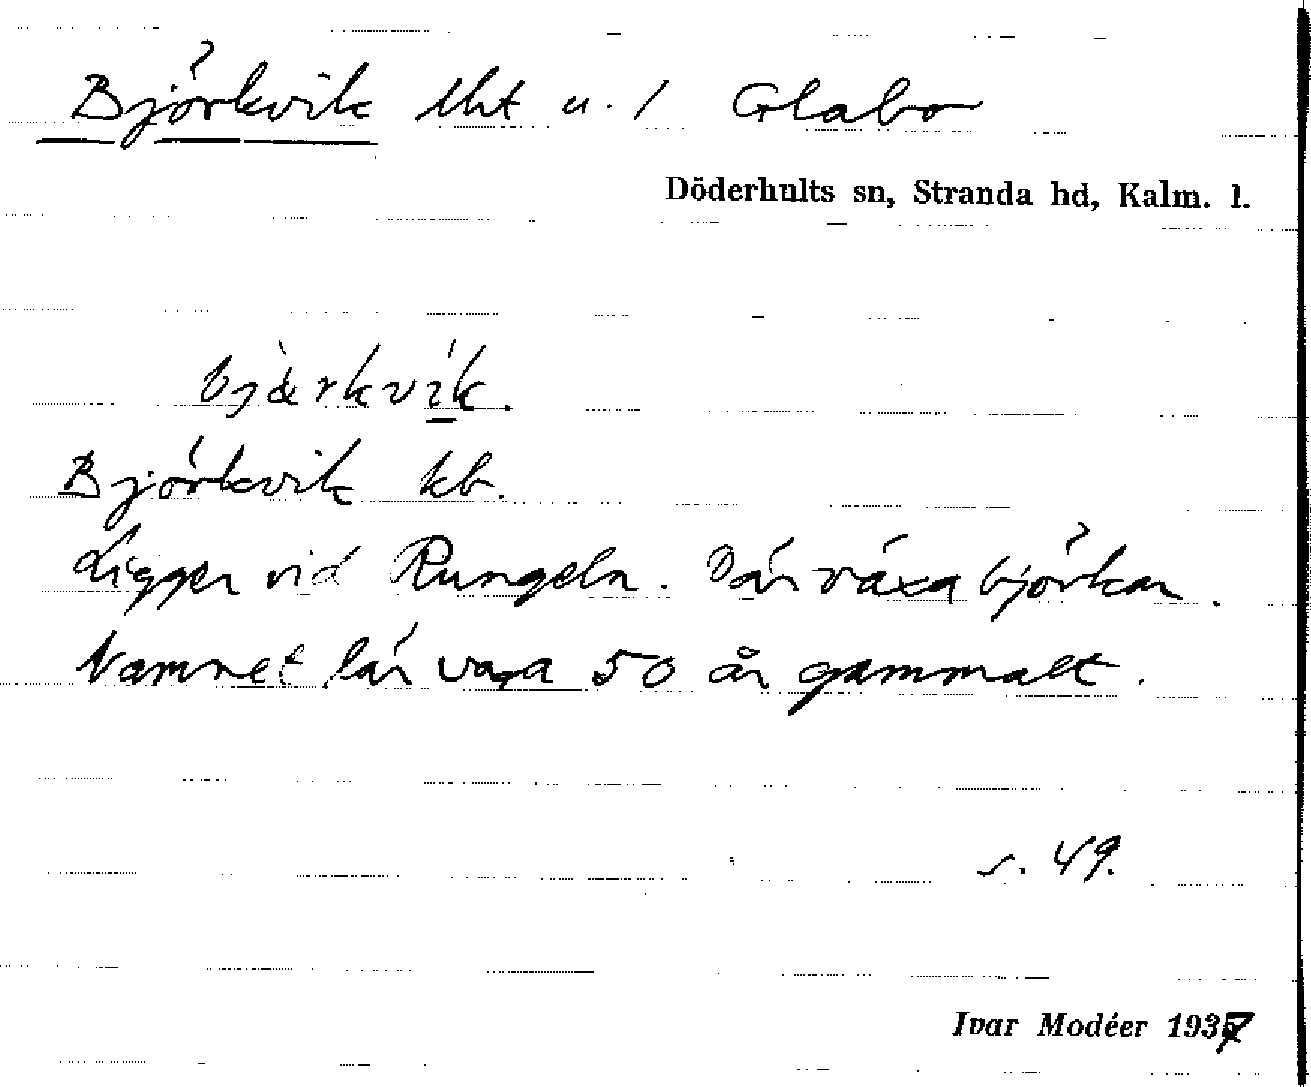 Björkvik lht u. 1 Glabo
Döderhults sn, Stranda hd, Kalm. l.
bjærkvik.
Björkvik kb.
Ligger vid Rungeln. Där växa björkar.
Namnet lär vara 50 år gammalt.
s. 49.
Ivar Modéer 1937